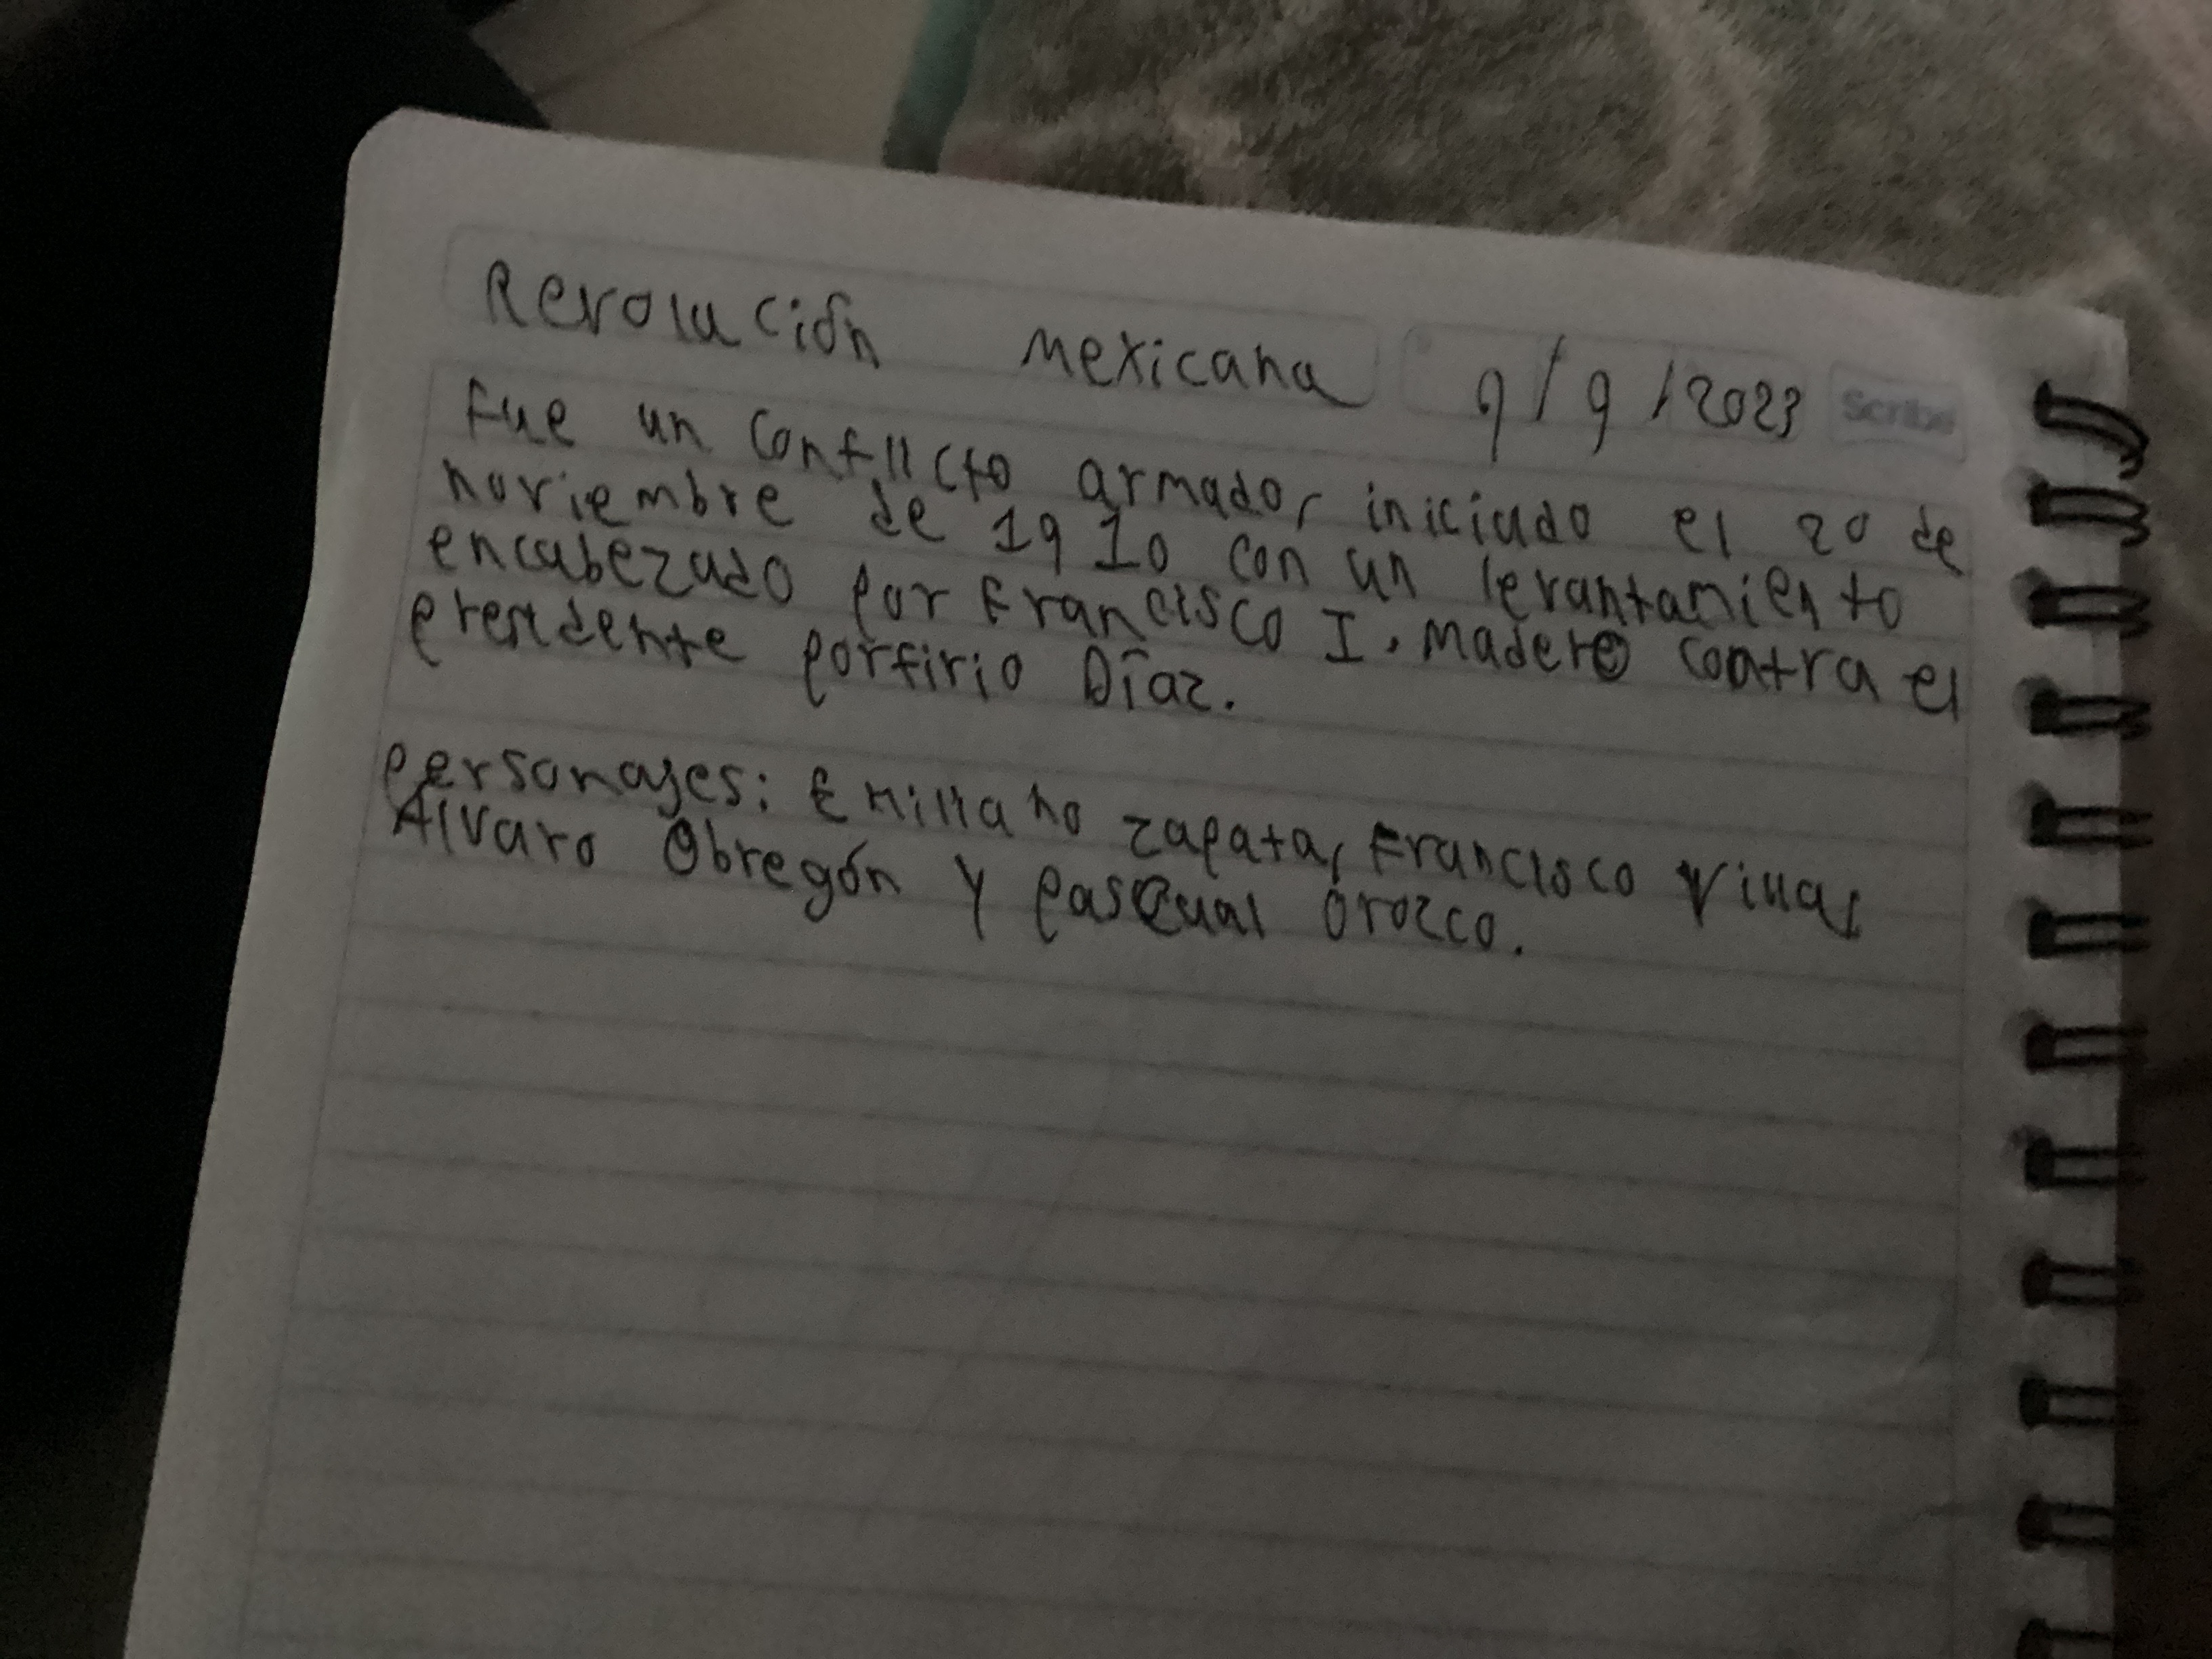 Revolución mexicana 9/9/2023 Scribe
Fue un conflicto armado, iniciado el 20 de
noviembre de 1910 con un levantamiento
encabezado por Francisco I. madero contra el
presidente porfirio Díaz.
personajes: Emiliano zapata, Francisco Villa,
Álvaro Obregón y pascual Orozco.